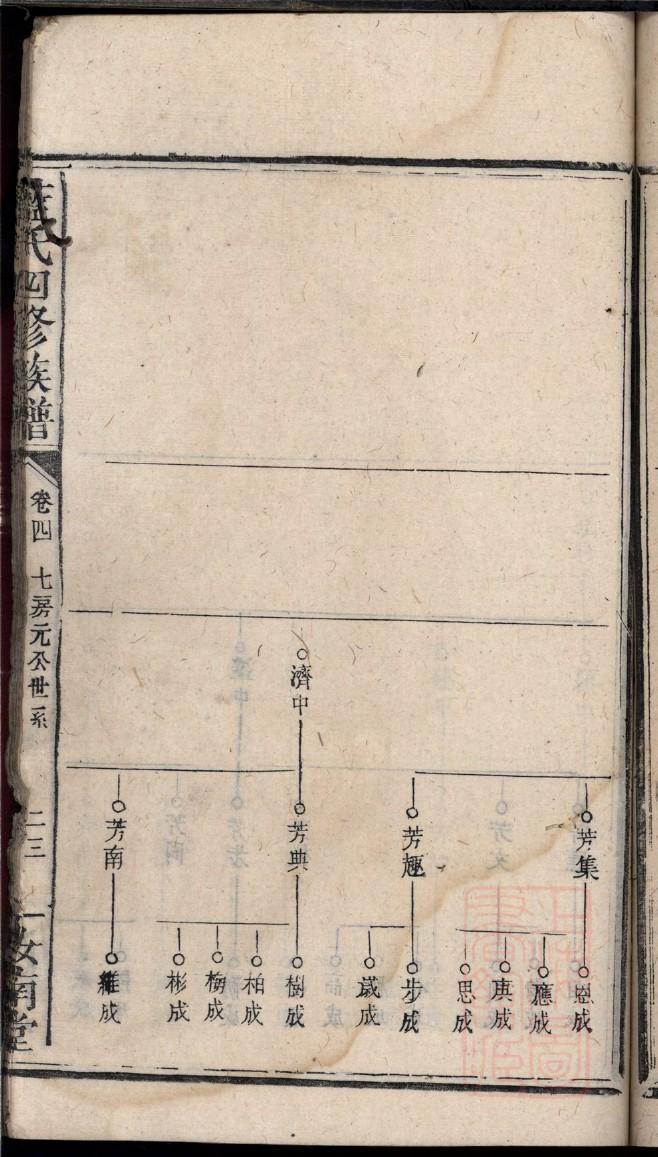 濟中
芳集
芳趣
芳典
芳南
恩成
應成
廣成
思成
步成
葳成
樹成
柏成
梅成
彬成
維成
藍氏四修族譜
卷四
七房元公世系
二三
汝南堂